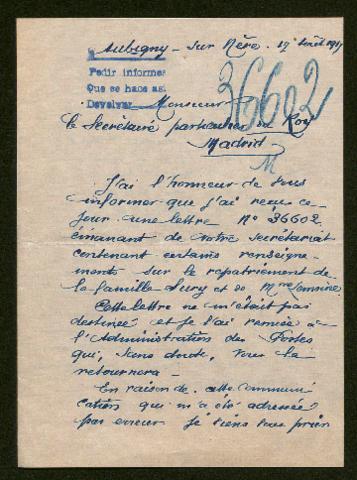 Aubigny-sur-Nère. 17 Août 1917
Pedir informes
Que se hace así
Devolver
36602
Monsieur
le Secrétaire particulier du Roi
Madrid
M
J'ai l'honneur de vous
informer que j'ai reçu ce
jour une lettre N° 36602
émanant de votre secrétariat
contenant certains renseigne-
ments sur le rapatriement de
la famille et de
Cette lettre ne m'était pas
destinée et je l'ai remise à
l'Administration des Postes
qui, sans doute, vous la
retournera -
En raison de cette communi
cation qui m'a été adressée
par erreur je viens vous prier